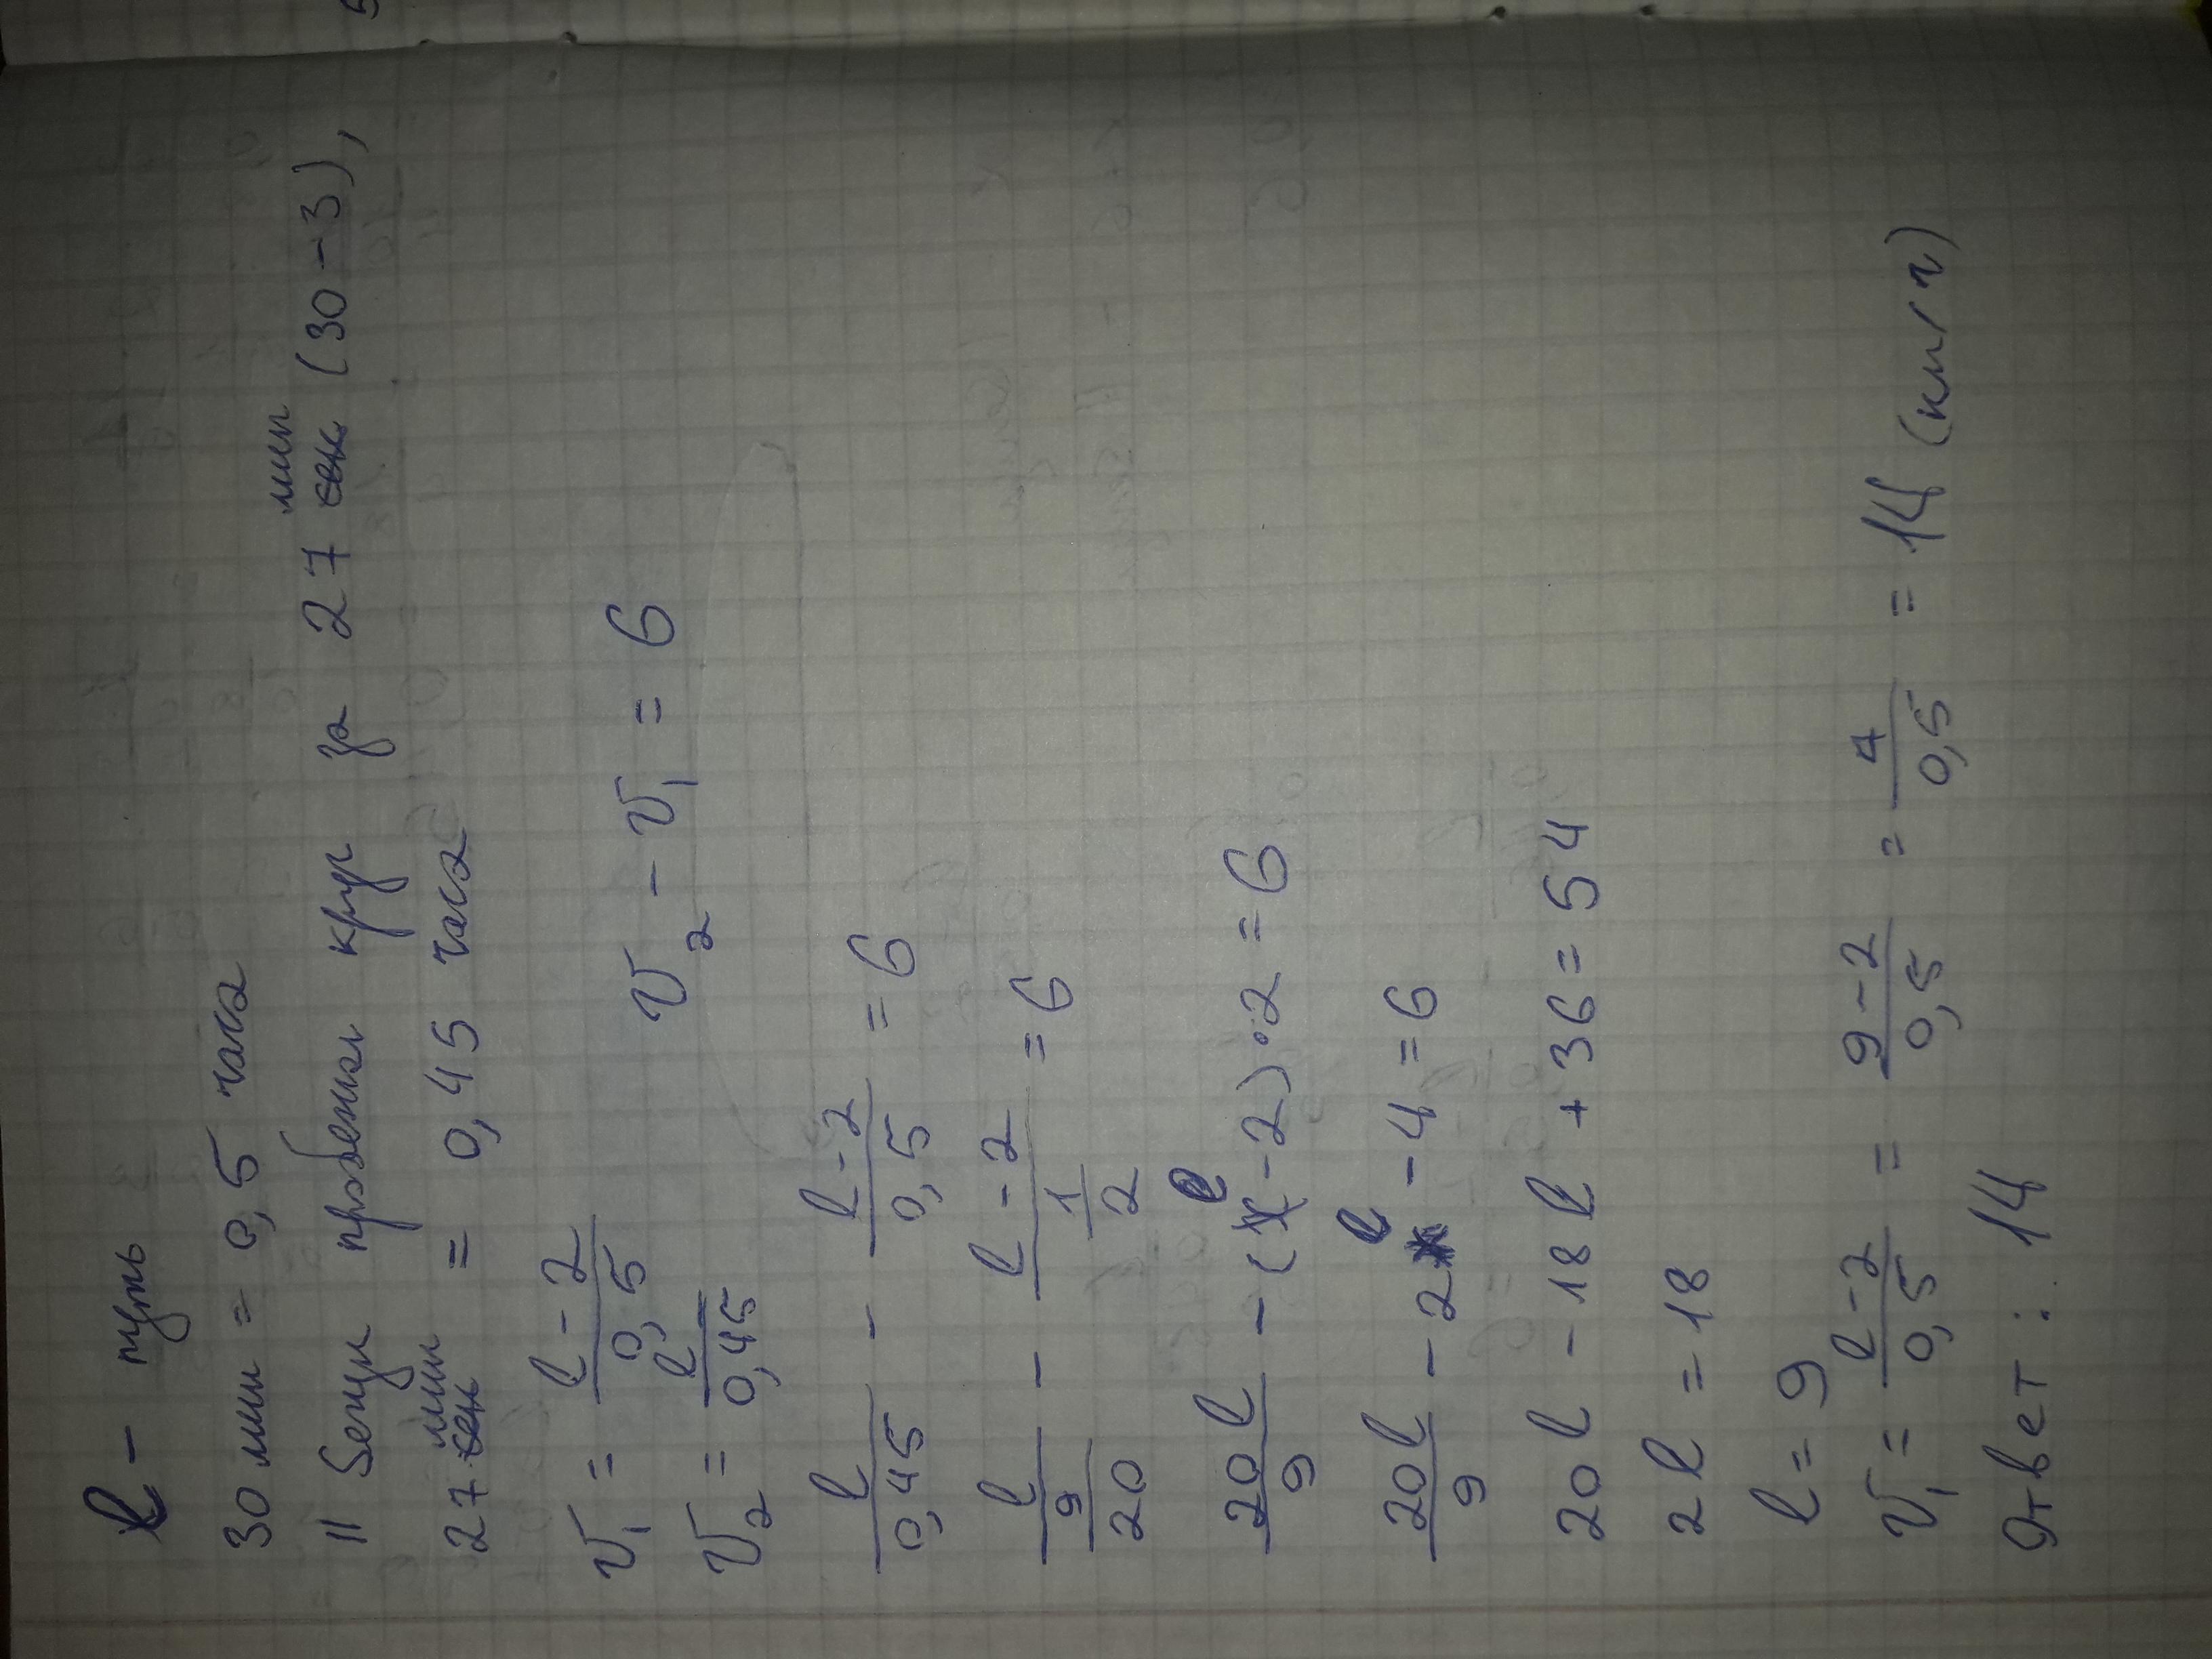 l - путь
30 мин = 0,5 часа
II бегун пробежал круг за 27 сек мин (30-3),
27 сек мин = 0,45 часа
V1 = (l - 2)/0,5
V2 = l/0,45 V2 - V1 = 6
l/0,45 - (l - 2)/0,5 = 6
l/(9/20) - (l - 2)/(1/2) = 6
20l/9 - (l - 2)·2 = 6
20l/9 - 2l - 4 = 6
20l - 18l + 36 = 54
2l = 18
l = 9
V1 = (l - 2)/0,5 = (9 - 2)/0,5 = 7/0,5 = 14 (км/ч)
Ответ: 14